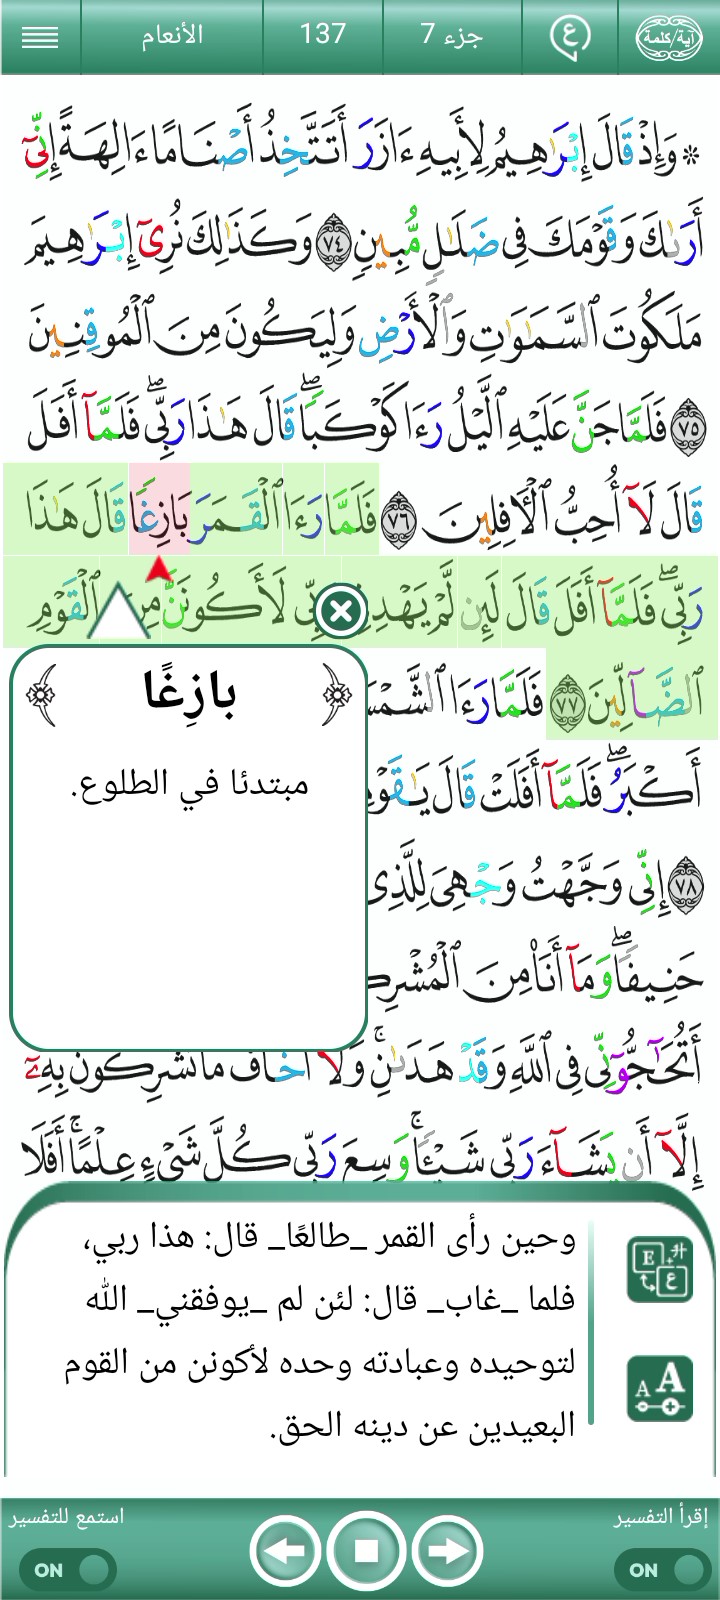 آية/كلمة
ع
جزء 7
137
الأنعام
* وَإِذْ قَالَ إِبْرَٰهِيمُ لِأَبِيهِ ءَازَرَ أَتَتَّخِذُ أَصْنَامًا ءَالِهَةً إِنِّىٓ
أَرَىٰكَ وَقَوْمَكَ فِى ضَلَٰلٍ مُّبِينٍ ﴿٧٤﴾ وَكَذَٰلِكَ نُرِىٓ إِبْرَٰهِيمَ
مَلَكُوتَ ٱلسَّمَٰوَٰتِ وَٱلْأَرْضِ وَلِيَكُونَ مِنَ ٱلْمُوقِنِينَ
﴿٧٥﴾ فَلَمَّا جَنَّ عَلَيْهِ ٱلَّيْلُ رَءَا كَوْكَبًاۖ قَالَ هَٰذَا رَبِّىۖ فَلَمَّآ أَفَلَ
قَالَ لَآ أُحِبُّ ٱلْأَفِلِينَ ﴿٧٦﴾ فَلَمَّا رَءَا ٱلْقَمَرَ بَازِغًا قَالَ هَٰذَا
رَبِّىۖ فَلَمَّآ أَفَلَ قَالَ لَئِن لَّمْ يَهْدِنِى رَبِّى لَأَكُونَنَّ مِنَ ٱلْقَوْمِ
ٱلضَّآلِّينَ ﴿٧٧﴾ فَلَمَّا رَءَا ٱلشَّمْسَ
بازِغًا
مبتدئا في الطلوع.
أَكْبَرُۖ فَلَمَّآ أَفَلَتْ قَالَ يَٰقَوْمِ
﴿٧٨﴾ إِنِّى وَجَّهْتُ وَجْهِىَ لِلَّذِى
حَنِيفًاۖ وَمَآ أَنَا۠ مِنَ ٱلْمُشْرِكِينَ
أَتُحَٰٓجُّوٓنِّى فِى ٱللَّهِ وَقَدْ هَدَىٰنِۚ وَلَآ أَخَافُ مَا تُشْرِكُونَ بِهِۦٓ
إِلَّآ أَن يَشَآءَ رَبِّى شَيْـًٔاۚ وَسِعَ رَبِّى كُلَّ شَىْءٍ عِلْمًاۚ أَفَلَا
وحين رأى القمر _طالعًا_ قال: هذا ربي،
فلما _غاب_ قال: لئن لم _يوفقني_ الله
لتوحيده وعبادته وحده لأكونن من القوم
البعيدين عن دينه الحق.
E ع
A A
إقرأ التفسير
ON
استمع للتفسير
ON